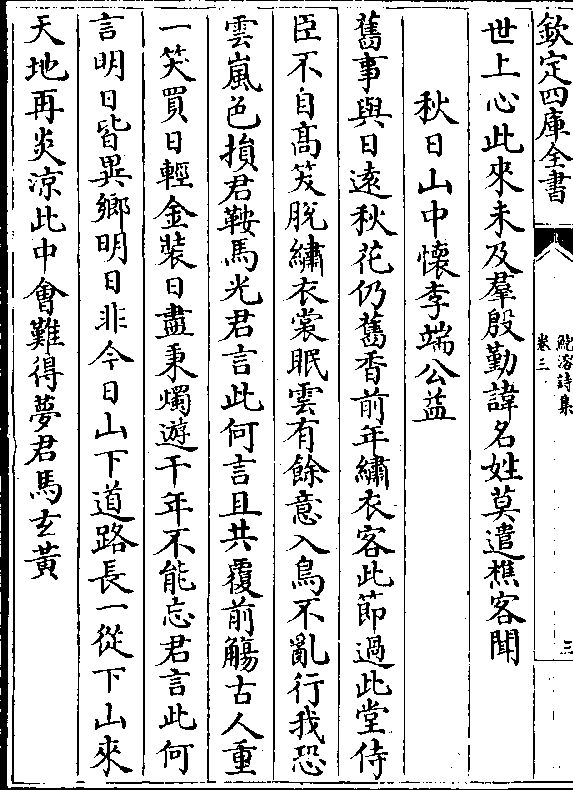 欽定四庫全書
鮑溶詩集
卷三
三
世上心此來未及羣殷勤諱名姓莫遣樵客聞
秋日山中懷李端公益
舊事與日遠秋花仍舊香前年繡衣客此節過此堂侍
臣不自髙笑脫繡衣裳眠雲有餘意入鳥不亂行我恐
雲嵐色損君鞍馬光君言此何言且共覆前觴古人重
一笑買日輕金裝日盡秉燭遊千年不能忘君言此何
言明日皆異鄉明日非今日山下道路長一從下山來
天地再炎涼此中會難得夢君馬玄黃